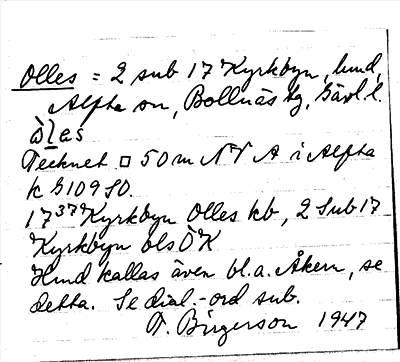 Olles = 2 sub 17 Kyrkbyn, hmd,
Alfta sn, Bollnäs tg, Gävl. l.
òlas
Tecknet □ 50 m NV A i Alfta
k G109 SO.
17³⁷ Kyrkbyn Olles kb, 2 Sub 17
Kyrkbyn bls ÖK
Hmd kallas även bl.a. Åkern, se
detta. Se dial.-ord sub.
T. Birgerson 1947